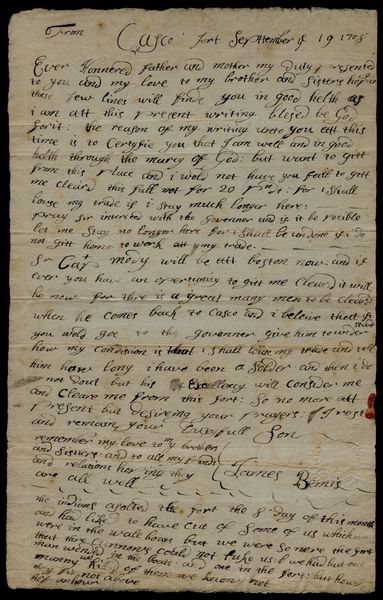 From Casco fort September ye 19 1705
Ever Honnered father and mother my duty presented
to you and my love to my brother and Sisters hoping
these few lines will finde you in good helth as
i am att this present writing blesed be God
for it: the reason of my writing unto you att this
time is to Certyfie you that I am well and in good
helth through the marcy of God: but want to gitt
from this Place and i wold not have you fail to gitt
me cleard this fall not for 20 for i shall
louse my trade if i stay much longer here:
pray Sir interced with the Govenner and if it be posible
let me Stay no longer here for i shall be undone if i do
not gitt home to work att my trade.
Sr Capt mody will be att boston now: and if
ever you have an oportunity to gitt me Clear it will
be now for thre is a great many men to be cleard
when he comes back to Casco and i beleive that if
you wold goe to the Govenner give him to understand
how my condision is that i shall lose my trade and tell
him how long i have been a Solder and then i do
not dout but his Excellency will consider me
and Cleare me from this fort: So no more att
Present but desiring your Prayers: I rest
and remain your Son
remember my love to my brothers
and Sisters and to all my frinds
and relations hoping they
are all well
James Bemis
the indians the fort the 8 day of this month
and had like to have cut of some of us which
were in the wall boas but we were so nere the fort
that there Cannons could not take us we had but one
man in the boats and one in the fort: but how
many we kild of them we know not
they
above